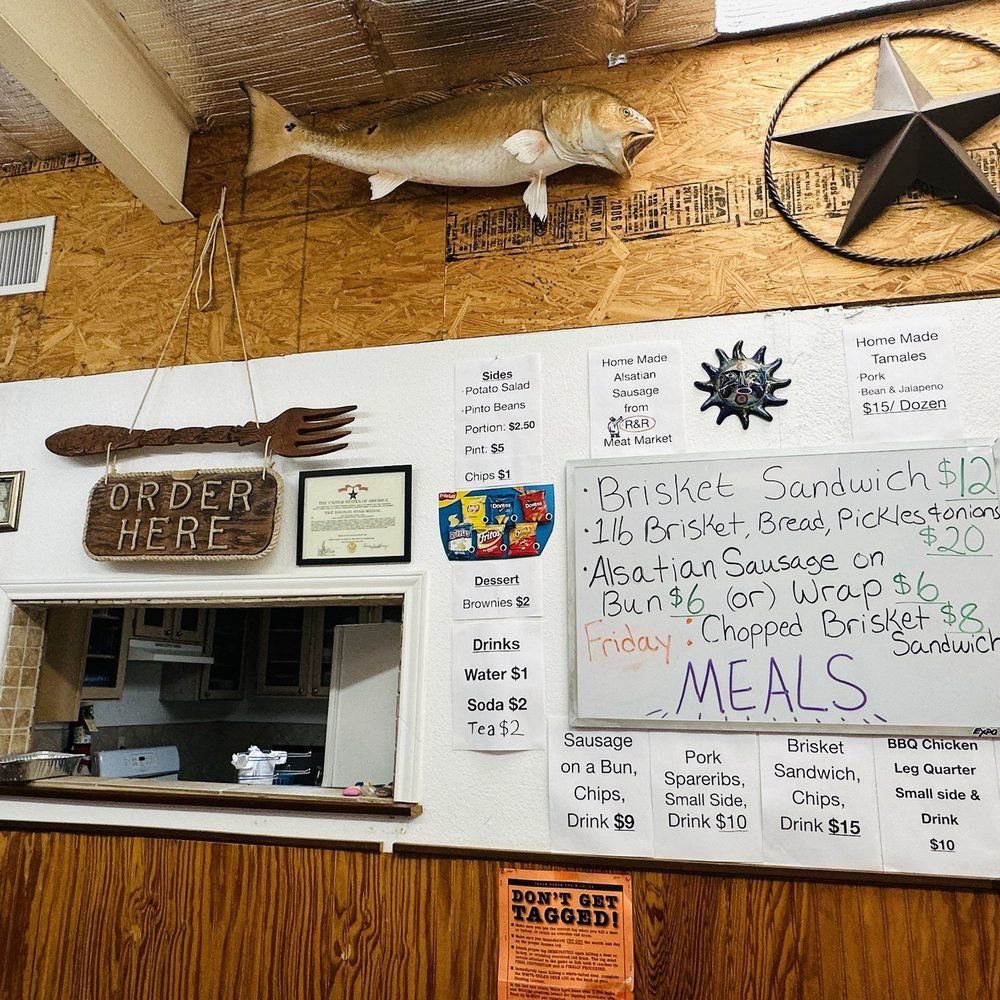 ORDER
HERE
THE UNITED STATES OF AMERICA
THE BRONZE STAR MEDAL
Sides
·Potato Salad
·Pinto Beans
Portion: $2.50
Pint: $5
Chips $1
Lay's
Doritos
Doritos
Ruffles
Fritos
Dessert
Brownies $2
Drinks
Water $1
Soda $2
Tea $2
Home Made
Alsatian
Sausage
from
R&R
Meat Market
Home Made
Tamales
·Pork
·Bean & Jalapeno
$15/ Dozen
·Brisket Sandwich $12
·1lb Brisket, Bread, Pickles & onions
$20
·Alsatian Sausage on
Bun $6 (or) Wrap $6
Friday: Chopped Brisket $8
Sandwich
MEALS
EXPO
Sausage
on a Bun,
Chips,
Drink $9
Pork
Spareribs,
Small Side,
Drink $10
Brisket
Sandwich,
Chips,
Drink $15
BBQ Chicken
Leg Quarter
Small side &
Drink
$10
DON'T GET
TAGGED!